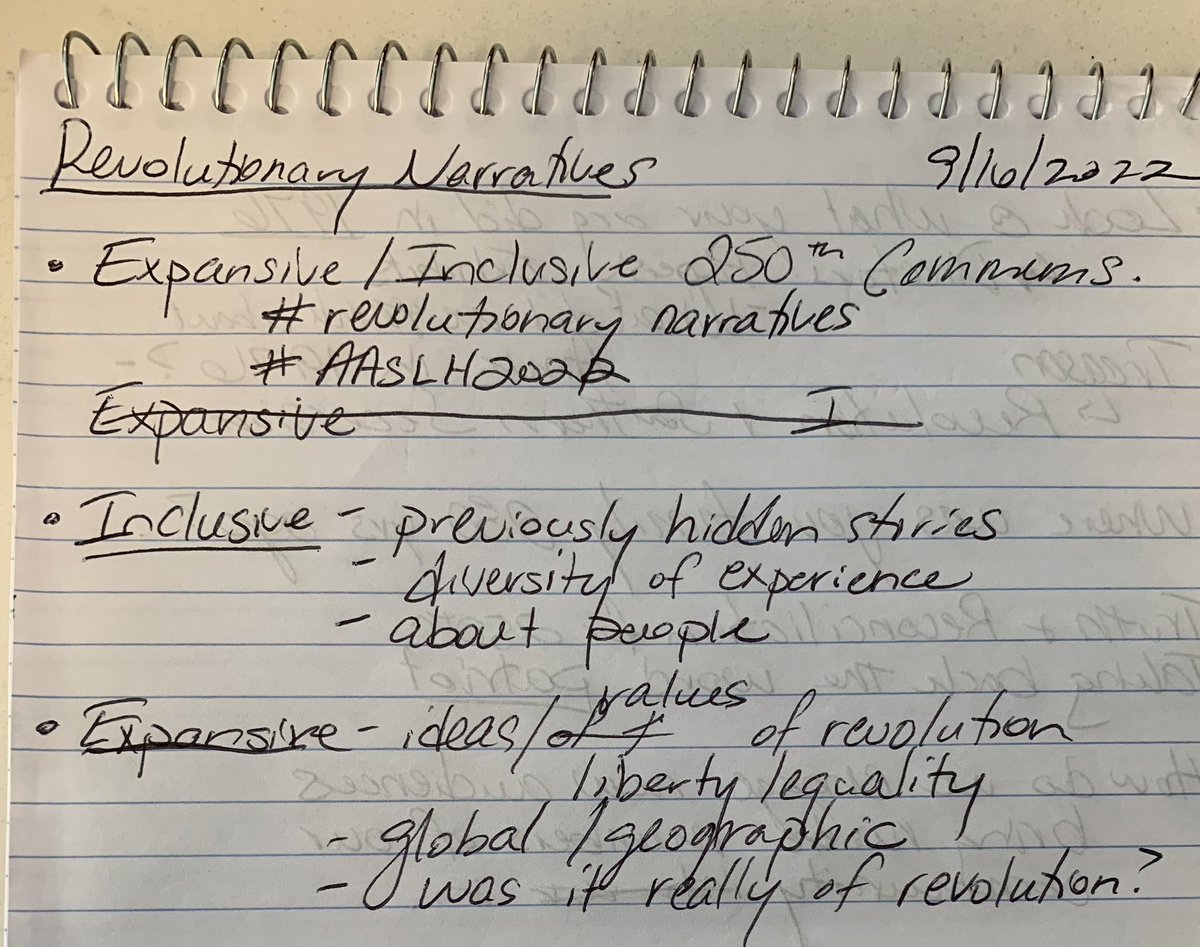 Revolutionary Narratives 9/16/2022
• Expansive / Inclusive 250th Commems.
# revolutionary narratives
# AASLH2022
Expansive I
• Inclusive - previously hidden stories
- diversity of experience
- about people
values
• Expansive - ideas/of of revolution
liberty/equality
- global/geographic
- was it really of revolution?